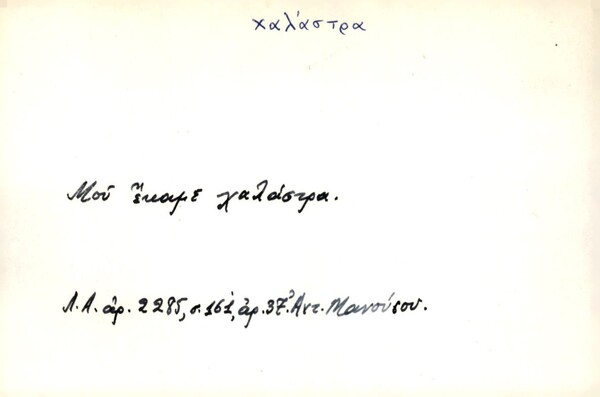 χαλάστρα
Μοῦ ἔκαμε χαλάστρα.
Λ.Α. ἀρ. 2285, σ. 161, ἀρ. 37. Ἀντ. Μανούσου.